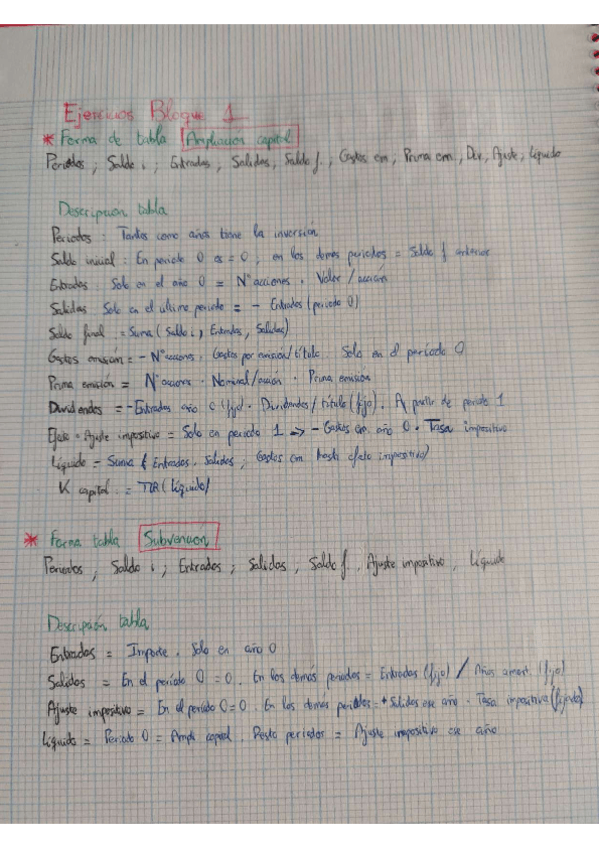 Ejercicios Bloque 1
* Forma de tabla Ampliación capital
Periodos ; Saldo i ; Entradas , Salidas , Saldo f. , Gastos em ; Prima em , Div , Ajuste , Líquido
Descripción tabla
Periodos : Tantos como años tiene la inversión
Saldo inicial : En periodo 0 es = 0 ; en los demas periodos = Saldo f anterior
Entradas : Solo en el año 0 = Nº acciones · Valor / acción
Salidas Solo en el ultimo periodo = - Entradas (periodo 0)
Saldo final = Suma ( Saldo i , Entradas , Salidas )
Gastos emisión = - Nº acciones · Gastos por emisión/título . Solo en el período 0
Prima emisión = Nº acciones · Nominal/acción · Prima emisión
Dividendos = - Entradas año 0 (fijo) · Dividendos / título (fijo) . A partir de periodo 1
Ajuste impositivo = Solo en periodo 1 => - Gastos em. año 0 · Tasa impositivo
Líquido = Suma ( Entradas , Salidas ; Gastos em hasta efecto impositivo)
K capital . = TIR ( Líquido )
* Forma tabla Subvención
Periodos ; Saldo i ; Entradas ; Salidas ; Saldo f , Ajuste impositivo , Líquido
Descripción tabla
Entradas = Importe . Solo en año 0
Salidas = En el periodo 0 = 0 . En los demás periodos = Entradas (fijo) / Años amort. (fijo)
Ajuste impositivo = En el período 0 = 0 . En los demas periodos = + Salidas ese año · Tasa impositiva (fijado)
Líquido = Periodo 0 = Ampl capital . Resto periodos = Ajuste impositivo ese año